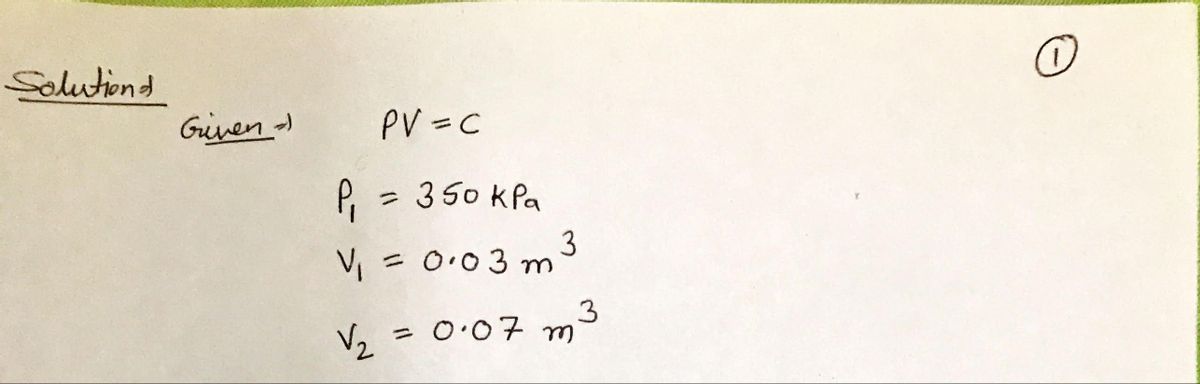 ①
Solution⇒
Given⇒ PV = C
P₁ = 350 kPa
V₁ = 0.03 m³
V₂ = 0.07 m³